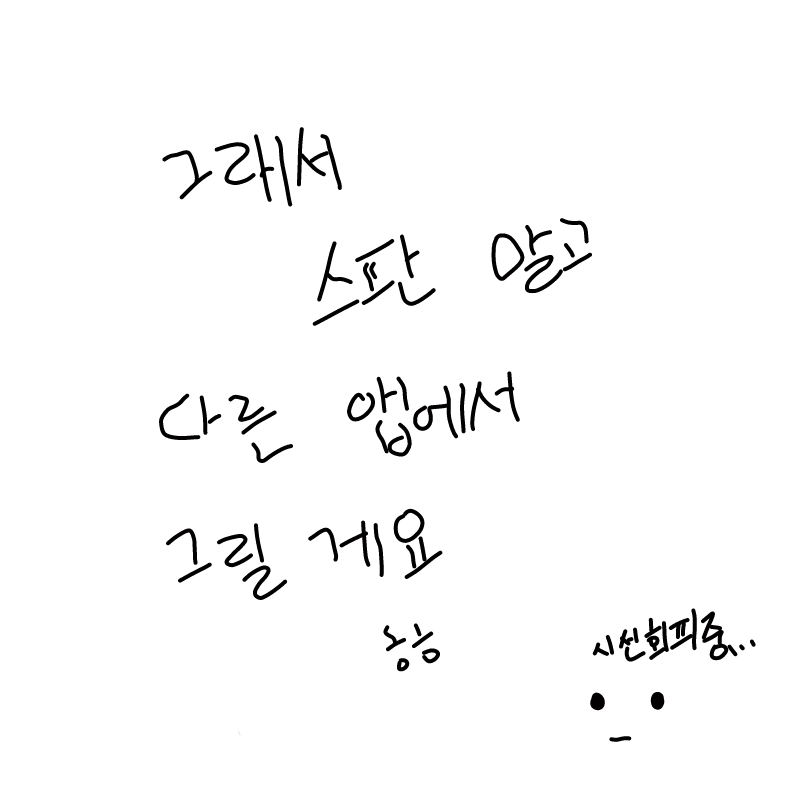 그래서
스판 말고
다른 앱에서
그릴 게요
흥흥
시썬회피중...